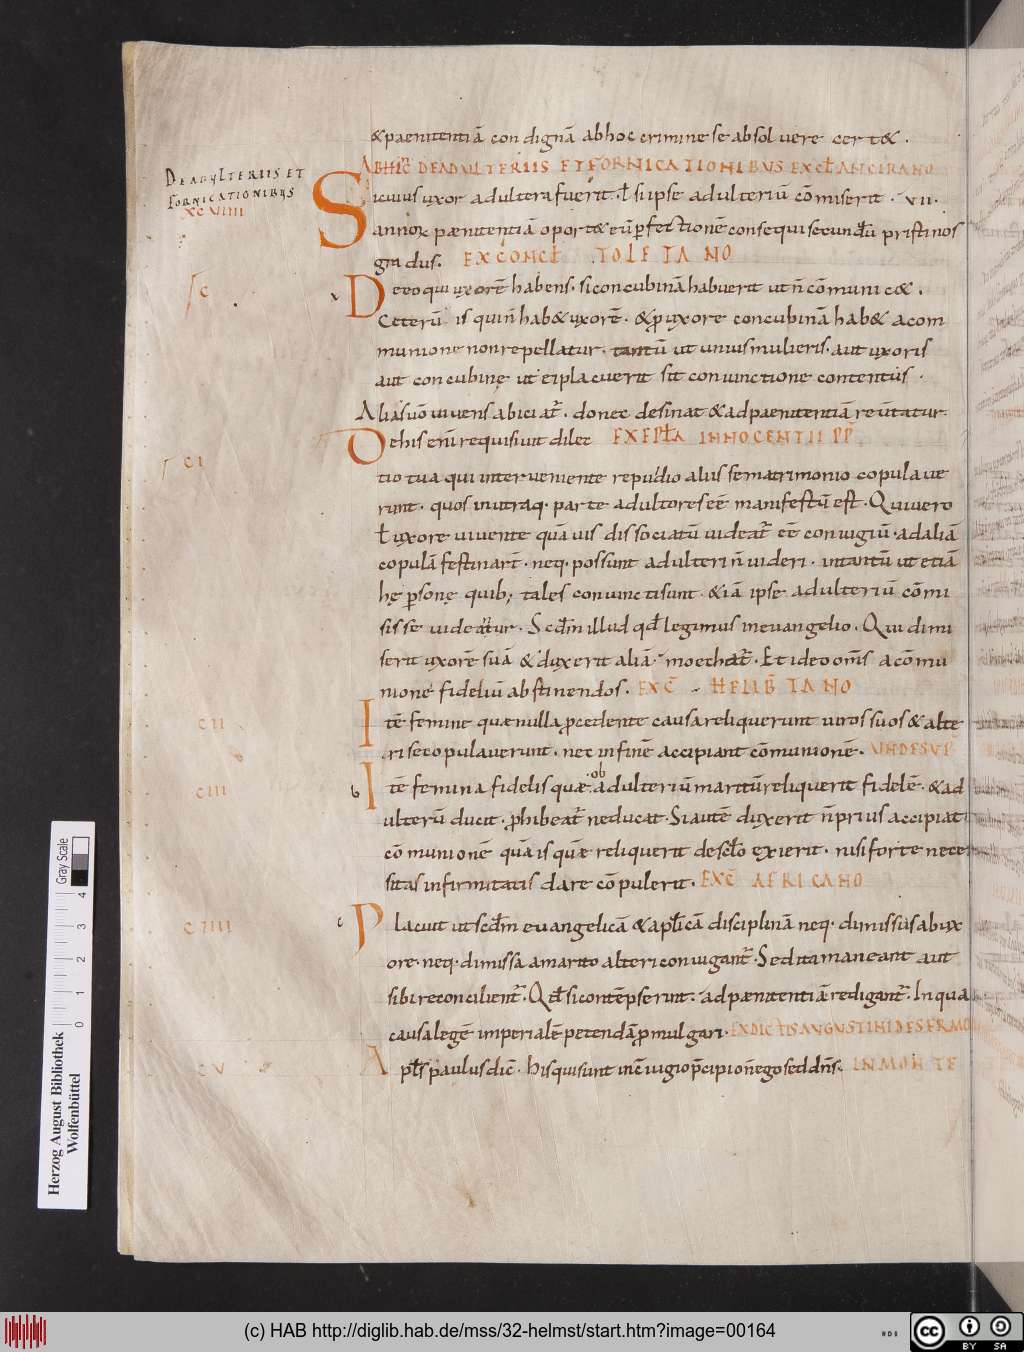 & paenitentiā condignā ab hoc crimine se absoluere cert&.
AB HIC DE ADULTERIIS ET FORNICATIONIBUS EX CŁ ANCIRANO
DE ADULTERIIS ET
FORNICATIONIBUS
XCVIIII
Si cuius uxor adultera fuerit. ł si ipse adulteriū cōmiserit. VII.
annoꝝ pænitentiā oport& eū ꝑfectionē consequi secundū pristinos
gradus. EX CONCŁ TOLETANO
C
De eo qui uxorē habens. si concubinā habuerit ut n̄ cōmunic&.
Ceterū is qui n̄ hab& uxorē. & ꝓ uxore concubinā hab& a com
munione non repellatur. tantū ut unius mulieris. aut uxoris
aut concubinę ut ei placuerit sit coniunctione contentus.
Alias uō uiuens abiciat̄. donec desinat & ad paenitentiā reūtatur
De his etiā requisiuit dilec EX EPŁA INNOCENTII PP
CI
tio tua qui interueniente repudio aliis se matrimonio copulaue
runt. quos in utraq. parte adulteros eē manifestū est. Qui uero
ł uxore uiuente quāuis dissociatū uideat̄ eē coniugiū. ad aliā
copulā festinar̄t. neq. possunt adulteri n̄ uideri. intantū ut etiā
hę ꝑsonę quib; tales coniuncti sunt. & iā ipse adulteriū cōmi
sisse uideatur. Scdm illud qd legimus in euangelio. Qui dimi
serit uxorē suā & duxerit aliā. moechat̄. Et ideo oms a cōmu
nione fideliū abstinendos. EXC̄ HELIB̄TANO
CII
Itē femine quæ nulla p̄cedente causa reliquerunt uiros suos & alte
ri se copulauerunt. nec in finē accipiant cōmunionē. UNDE SUP
CIII
b
Itē femina fidelis quæ ob adulteriū maritū reliquerit fidelē. & ad
ulterū ducit. ꝓhibeat̄ ne ducat. Si autē duxerit n̄ prius accipiat
cōmunionē quā is quē reliquerit de sclo exierit. nisi forte neces
sitas infirmitatis dare cōpulerit. EXC̄ AFRICANO
CIIII
c
Placuit ut scdm euangelicā & aplicā disciplinā neq. dimissus ab ux
ore. neq. dimissa a marito alteri coniugant̄. Sed ita maneant aut
sibi reconcilient̄. Qd si contēpserint. ad pænitentiā redigant̄. In qua
causa legē imperialē petendā ꝓmulgari. EX DICTIS AUGUSTINI DE SERMO
CV
Aplus paulus dic̄. His qui sunt in c̄iugio p̄cipio n̄ ego sed dn̄s. IN MONTE
Herzog August Bibliothek
Wolfenbüttel
Gray Scale
0 1 2 3 4
(c) HAB http://diglib.hab.de/mss/32-helmst/start.htm?image=00164
cc BY SA